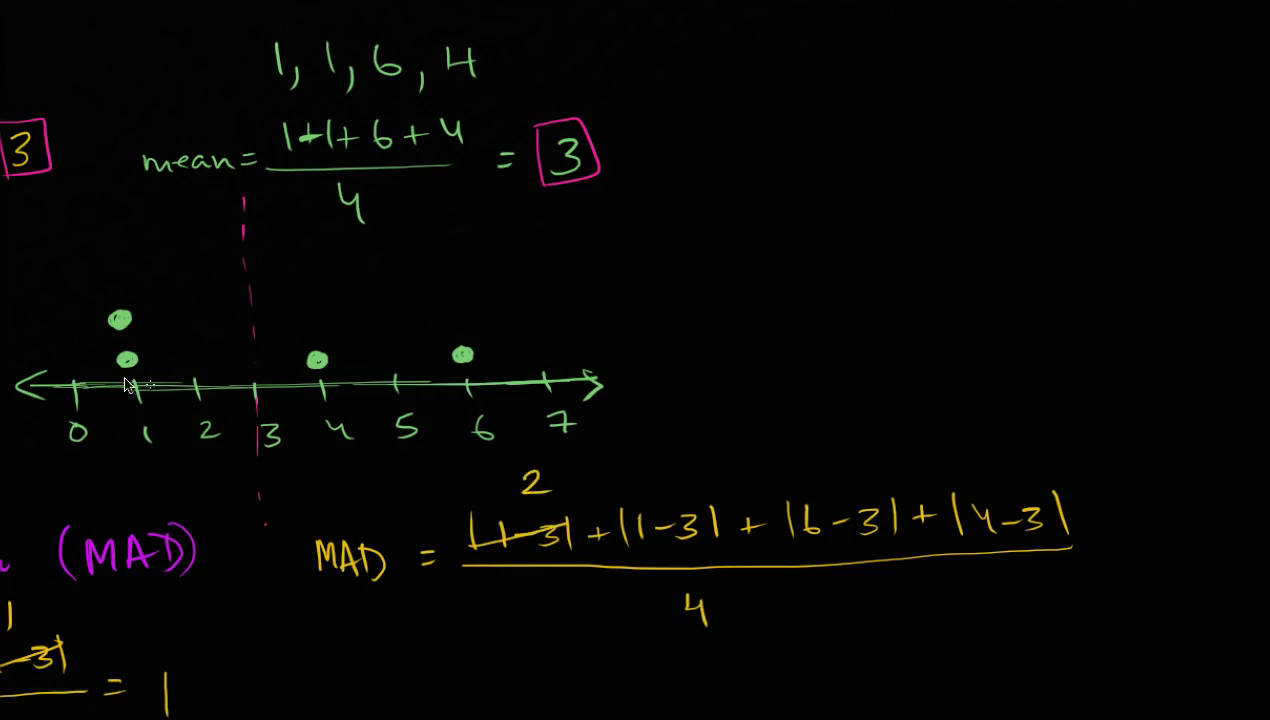 1, 1, 6, 4
3
mean = 1+1+6+4 = 3
4
0 1 2 3 4 5 6 7
2
(MAD) MAD = |1-3| + |1-3| + |6-3| + |4-3|
4
1
-3| = 1